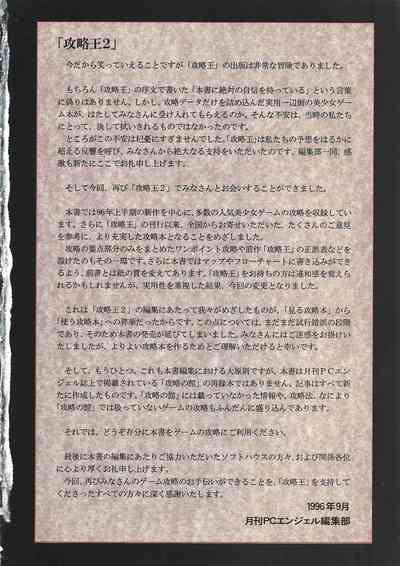 「攻略王2」
今だから笑っていえることですが「攻略王」の出版は非常な冒険でありました。
もちろん「攻略王」の序文で書いた「本書に絶対の自信を持っている」という言葉
に偽りはありません。しかし、攻略データだけを詰め込んだ実用一辺倒の美少女ゲー
ム本が、はたしてみなさんに受け入れてもらえるのか。そんな不安は、当時の私たち
にとって、決して拭いきれるものではなかったのです。
ところがこの不安は杞憂にすぎませんでした。「攻略王」は私たちの予想をはるかに
超える反響を呼び、みなさんから絶大なる支持をいただいたのです。編集部一同、感
激も新たにここでお礼申し上げます。
そして今回、再び「攻略王2」でみなさんとお会いすることができました。
本書では96年上半期の新作を中心に、多数の人気美少女ゲームの攻略を収録してい
ます。さらに「攻略王」の刊行以来、全国からお寄せいただいた、たくさんのご意見
を参考に、より充実した攻略本となることをめざしました。
攻略の要点部分のみをまとめたワンポイント攻略や前作「攻略王」の正誤表などを
設けたのもその一環です。さらに本書ではマップやフローチャートに書き込みができ
るよう、前書とは紙の質を変えてあります。「攻略王」をお持ちの方には違和感を覚え
られるかもしれませんが、実用性を重視した結果、今回の変更となりました。
これは「攻略王2」の編集にあたって我々がめざしたものが、「見る攻略本」から
「使う攻略本」への昇華だったからです。この点については、まだまだ試行錯誤の段階
であり、そのため本書の発売が延びてしまいました。みなさんにはご迷惑をお掛けい
たしましたが、よりよい攻略本を作るためとご理解いただけると幸いです。
そして、もうひとつ。これも本書編集における大原則ですが、本書は月刊PCエン
ジェル誌上で掲載されている「攻略の館」の再録本ではありません。記事はすべて新
たに作成したものです。「攻略の館」には載っていなかった情報や、攻略法、なにより
「攻略の館」では扱っていないゲームの攻略もふんだんに盛り込んであります。
それでは、どうぞ存分に本書をゲームの攻略にご利用ください。
最後に本書の編集にあたりご協力いただいたソフトハウスの方々、および関係各位
に心より厚くお礼申し上げます。
今回、再びみなさんのゲーム攻略のお手伝いができることを、「攻略王」を支持して
くださったすべての方々に深く感謝いたします。
1996年9月
月刊PCエンジェル編集部